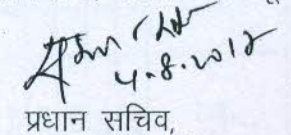 4.8.2012
प्रधान सचिव,